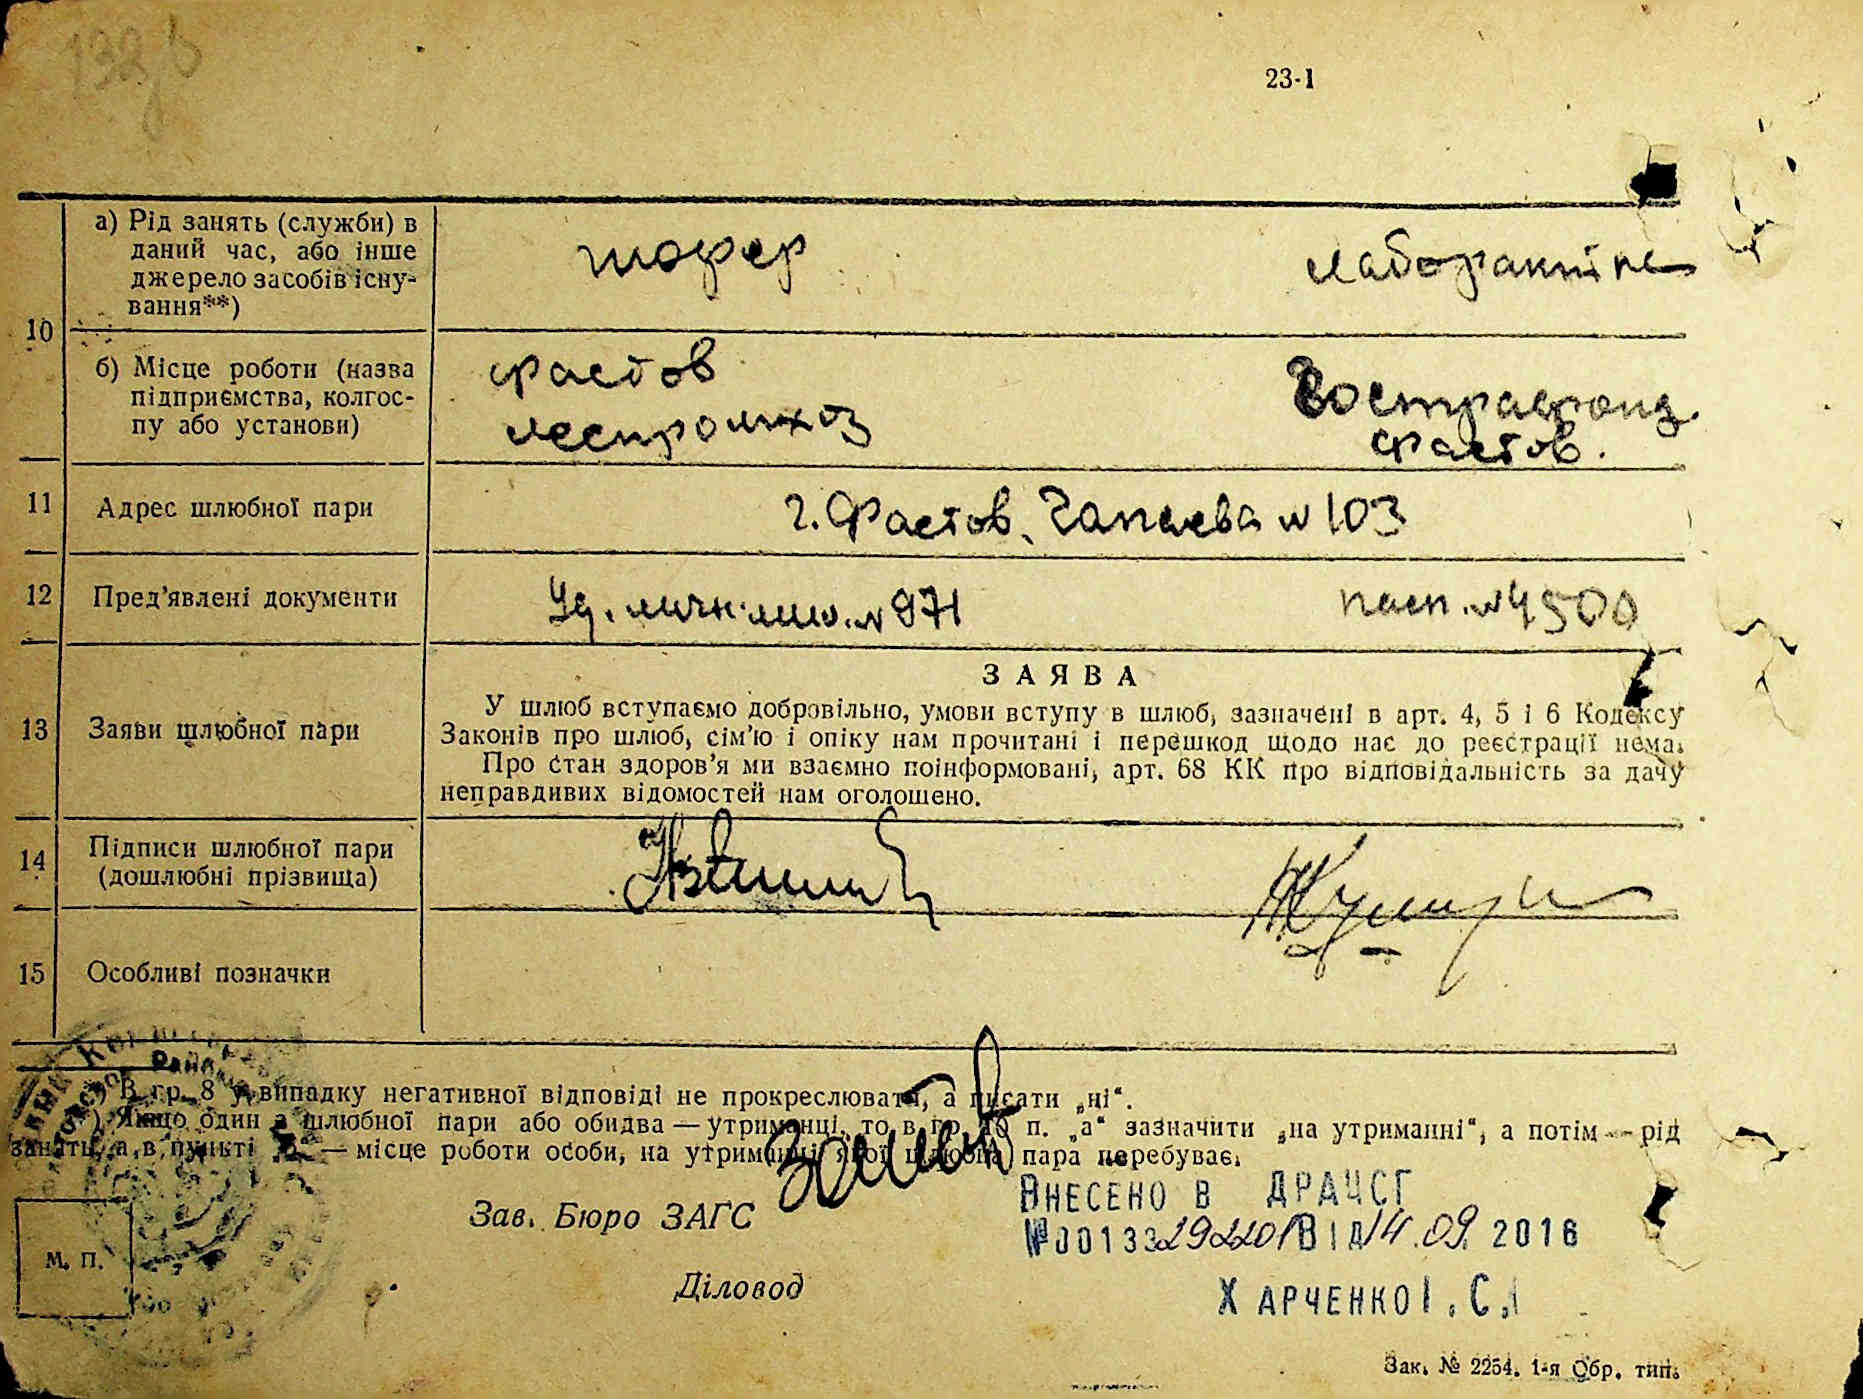 23-1
10
а) Рід занять (служби) в
даний час, або інше
джерело засобів існу-
вання**)
шофер
лаборантка
б) Місце роботи (назва
підприємства, колгос-
пу або установи)
Фастов
леспромхоз
Фастов.
11
Адрес шлюбної пари
г. Фастов, Чапаева № 103
12
Пред'явлені документи
Уд. личн. № 971
пасп. № 4500
13
Заяви шлюбної пари
ЗАЯВА
У шлюб вступаємо добровільно, умови вступу в шлюб, зазначені в арт. 4, 5 і 6 Кодексу
Законів про шлюб, сім'ю і опіку нам прочитані і перешкод щодо нас до реєстрації нема.
Про стан здоров'я ми взаємно поінформовані, арт. 68 КК про відповідальність за дачу
неправдивих відомостей нам оголошено.
14
Підписи шлюбної пари
(дошлюбні прізвища)
15
Особливі позначки
*) В гр. 8 у випадку негативної відповіді не прокреслювати, а писати „ні“.
**) Якщо один з шлюбної пари або обидва — утриманці, то в гр. 10 п. „а“ зазначити „на утриманні“, а потім — рід
занять, а в пункті „б“ — місце роботи особи, на утриманні якої шлюбна пара перебуває.
Зав. Бюро ЗАГС
ВНЕСЕНО В ДРАЦСГ
№ 00133292201 ВІД 14.09.2016
М. П.
Діловод
ХАРЧЕНКО І. С.
Зак. № 2254. 1-я Обр. тип.